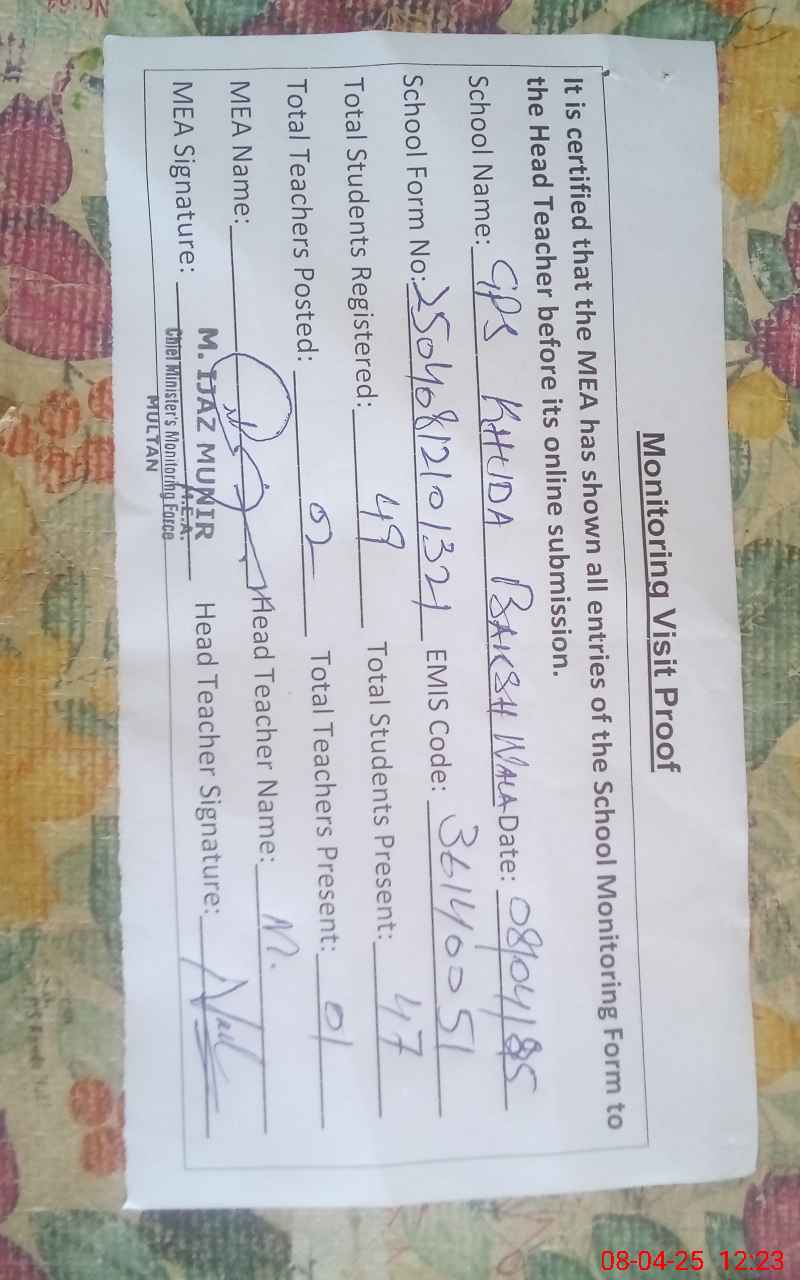 Monitoring Visit Proof
It is certified that the MEA has shown all entries of the School Monitoring Form to
the Head Teacher before its online submission.
School Name: GPS KHUDA BAKSH WALA Date: 08/04/25
School Form No: 25040812101321 EMIS Code: 36140051
Total Students Registered: 49 Total Students Present: 47
Total Teachers Posted: 02 Total Teachers Present: 01
MEA Name: Head Teacher Name: M.
MEA Signature: Head Teacher Signature:
M. IJAZ MUNIR
M.E.A.
Chief Minister's Monitoring Force
MULTAN
08-04-25 12:23